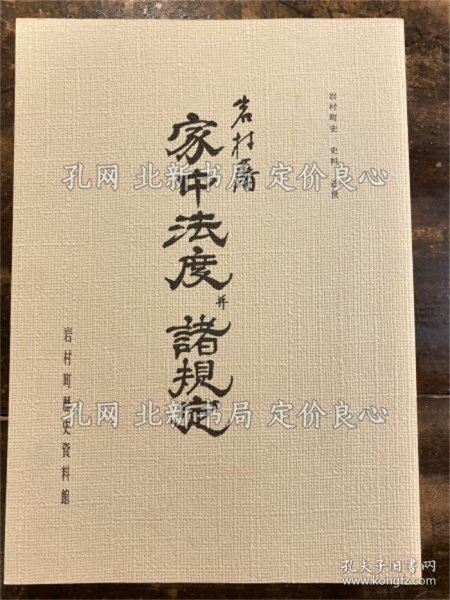 岩村町史 史料
岩村藩
家中法度并諸規定
岩村町歴史資料館
孔网 北新书局 定价良心
孔网 北新书局 定价良心
孔网 北新书局 定价良心
孔夫子旧书网
www.kongfz.com